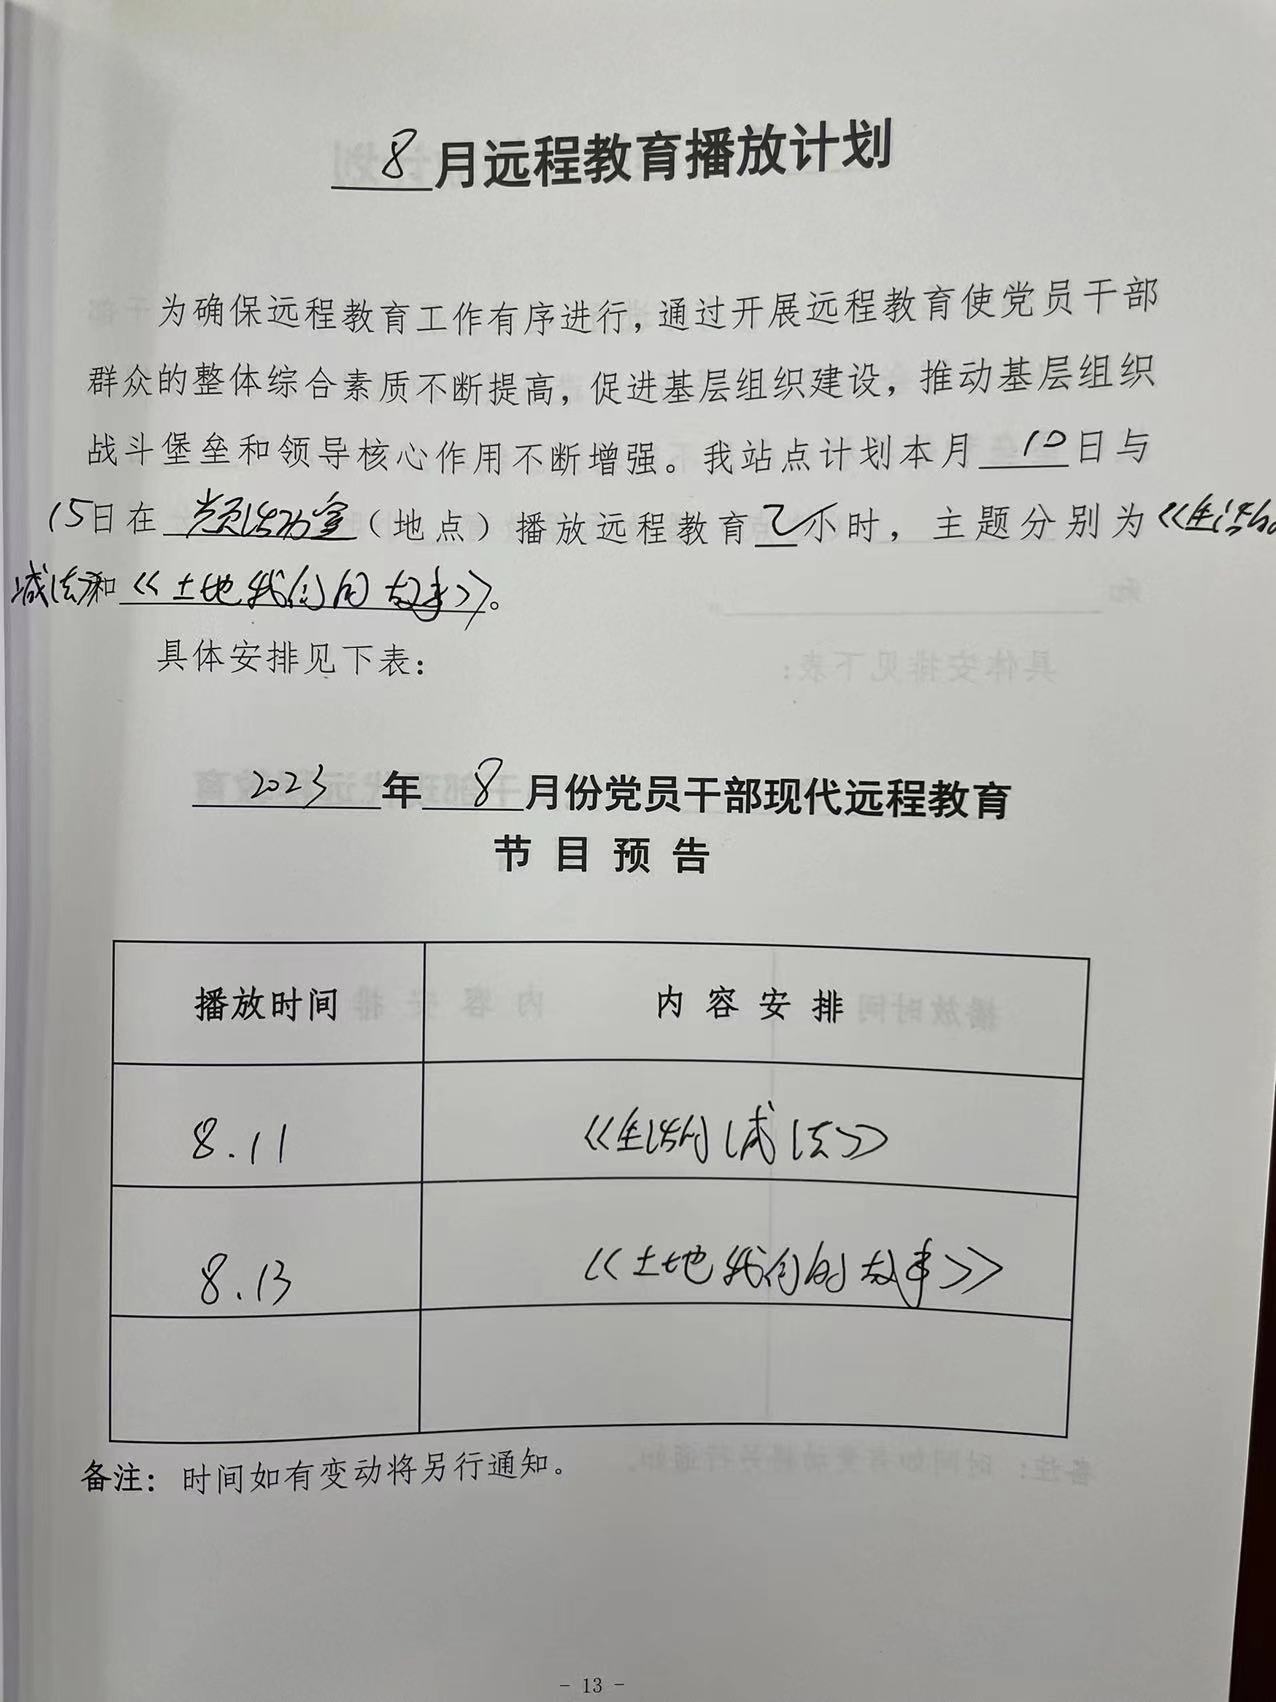 8月远程教育播放计划
为确保远程教育工作有序进行，通过开展远程教育使党员干部
群众的整体综合素质不断提高，促进基层组织建设，推动基层组织
战斗堡垒和领导核心作用不断增强。我站点计划本月10日与
15日在党员活动室（地点）播放远程教育2小时，主题分别为《生活的
减法》和《土地我们的故事》。
具体安排见下表：
2023年8月份党员干部现代远程教育
节目预告
播放时间 内容安排
8.11 《生活的减法》
8.13 《土地我们的故事》
备注：时间如有变动将另行通知。
- 13 -